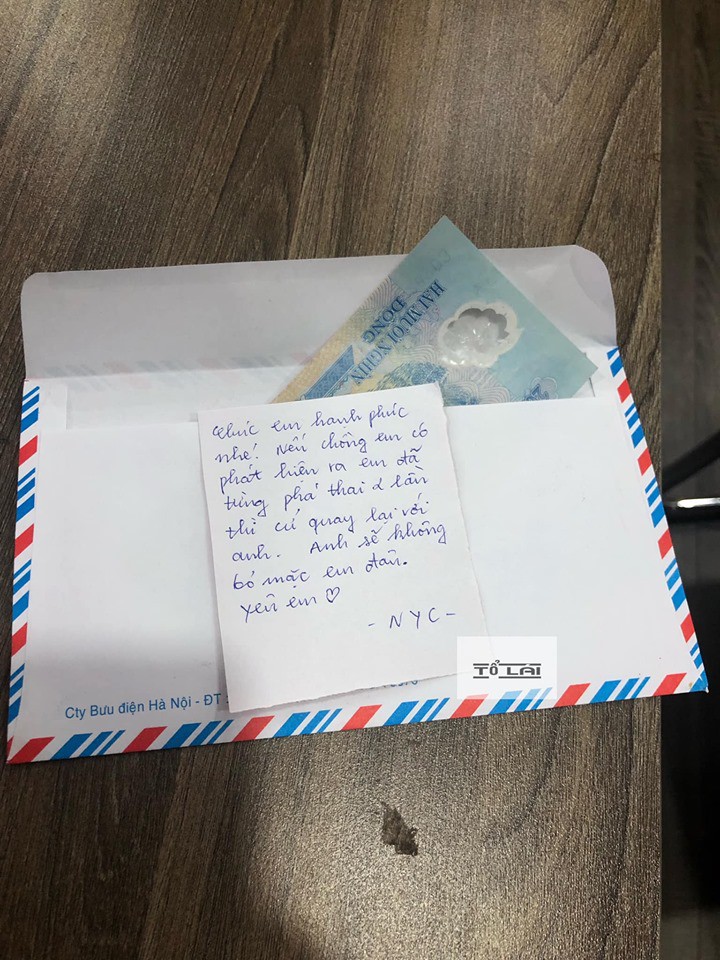 HAI MƯƠI NGHÌN
ĐỒNG
Chúc em hanh phúc
nhé! Nếu chồng em có
phát hiện ra em đã
từng phá thai 2 lần
thì cứ quay lại với
anh. Anh sẽ không
bỏ mặc em đâu.
Yêu em ♡
- NYC -
TỔ LÁI
Cty Bưu điện Hà Nội - ĐT